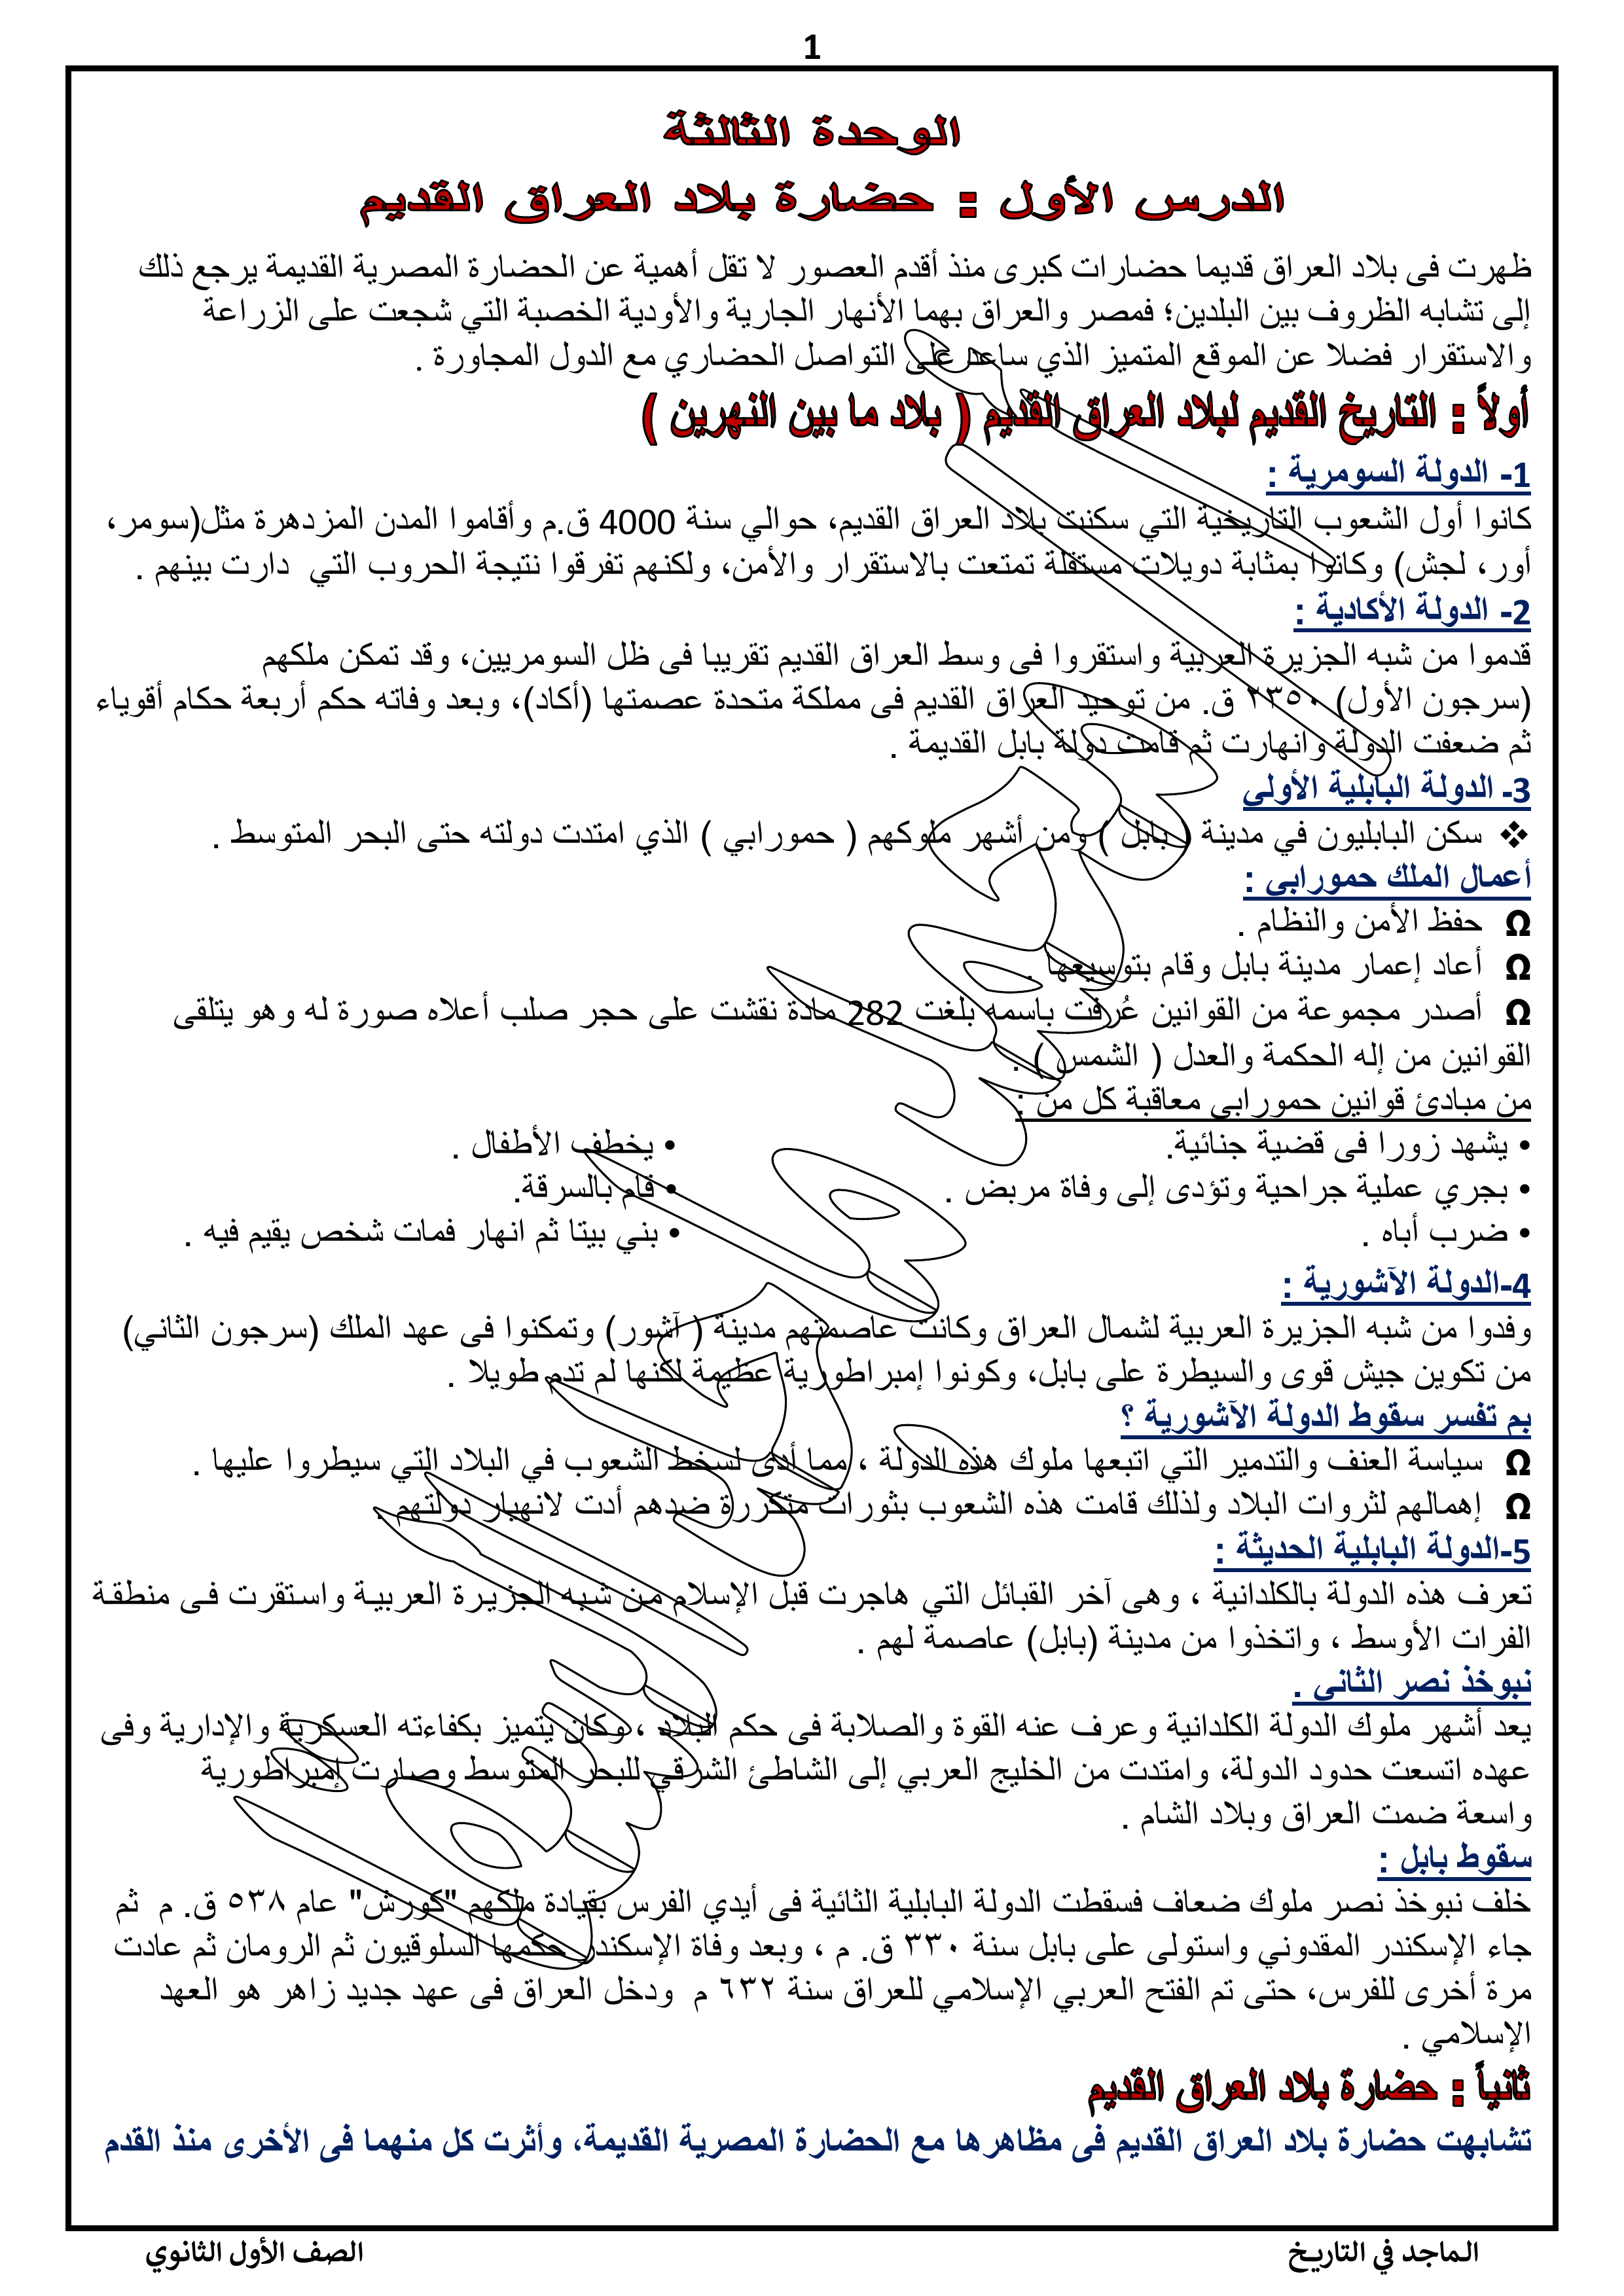 1
الوحدة الثالثة
الدرس الأول : حضارة بلاد العراق القديم
ظهرت فى بلاد العراق قديما حضارات كبرى منذ أقدم العصور لا تقل أهمية عن الحضارة المصرية القديمة يرجع ذلك
إلى تشابه الظروف بين البلدين؛ فمصر والعراق بهما الأنهار الجارية والأودية الخصبة التي شجعت على الزراعة
والاستقرار فضلا عن الموقع المتميز الذي ساعد على التواصل الحضاري مع الدول المجاورة .
أولاً : التاريخ القديم لبلاد العراق القديم ( بلاد ما بين النهرين )
1- الدولة السومرية :
كانوا أول الشعوب التاريخية التي سكنت بلاد العراق القديم، حوالي سنة 4000 ق.م وأقاموا المدن المزدهرة مثل(سومر،
أور، لجش) وكانوا بمثابة دويلات مستقلة تمتعت بالاستقرار والأمن، ولكنهم تفرقوا نتيجة الحروب التي دارت بينهم .
2- الدولة الأكادية :
قدموا من شبه الجزيرة العربية واستقروا فى وسط العراق القديم تقريبا فى ظل السومريين، وقد تمكن ملكهم
(سرجون الأول) ٢٣٥٠ ق. من توحيد العراق القديم فى مملكة متحدة عصمتها (أكاد)، وبعد وفاته حكم أربعة حكام أقوياء
ثم ضعفت الدولة وانهارت ثم قامت دولة بابل القديمة .
3- الدولة البابلية الأولى
❖ سكن البابليون في مدينة ( بابل ) ومن أشهر ملوكهم ( حمورابي ) الذي امتدت دولته حتى البحر المتوسط .
أعمال الملك حمورابى :
Ω حفظ الأمن والنظام .
Ω أعاد إعمار مدينة بابل وقام بتوسيعها .
Ω أصدر مجموعة من القوانين عُرفت باسمه بلغت 282 مادة نقشت على حجر صلب أعلاه صورة له وهو يتلقى
القوانين من إله الحكمة والعدل ( الشمس ) .
من مبادئ قوانين حمورابى معاقبة كل من :
• يشهد زورا فى قضية جنائية. • يخطف الأطفال .
• بجري عملية جراحية وتؤدى إلى وفاة مربض . • قام بالسرقة.
• ضرب أباه . • بني بيتا ثم انهار فمات شخص يقيم فيه .
4-الدولة الآشورية :
وفدوا من شبه الجزيرة العربية لشمال العراق وكانت عاصمتهم مدينة ( آشور) وتمكنوا فى عهد الملك (سرجون الثاني)
من تكوين جيش قوى والسيطرة على بابل، وكونوا إمبراطورية عظيمة لكنها لم تدم طويلا .
بم تفسر سقوط الدولة الآشورية ؟
Ω سياسة العنف والتدمير التي اتبعها ملوك هذه الدولة ، مما أدى لسخط الشعوب في البلاد التي سيطروا عليها .
Ω إهمالهم لثروات البلاد ولذلك قامت هذه الشعوب بثورات متكررة ضدهم أدت لانهيار دولتهم .
5-الدولة البابلية الحديثة :
تعرف هذه الدولة بالكلدانية ، وهى آخر القبائل التي هاجرت قبل الإسلام من شبه الجزيرة العربية واستقرت فى منطقة
الفرات الأوسط ، واتخذوا من مدينة (بابل) عاصمة لهم .
نبوخذ نصر الثانى .
يعد أشهر ملوك الدولة الكلدانية وعرف عنه القوة والصلابة فى حكم البلاد ، وكان يتميز بكفاءته العسكرية والإدارية وفى
عهده اتسعت حدود الدولة، وامتدت من الخليج العربي إلى الشاطئ الشرقي للبحر المتوسط وصارت إمبراطورية
واسعة ضمت العراق وبلاد الشام .
سقوط بابل :
خلف نبوخذ نصر ملوك ضعاف فسقطت الدولة البابلية الثائية فى أيدي الفرس بقيادة ملكهم "كورش" عام ٥٣٨ ق. م ثم
جاء الإسكندر المقدوني واستولى على بابل سنة ٣٣٠ ق. م ، وبعد وفاة الإسكندر حكمها السلوقيون ثم الرومان ثم عادت
مرة أخرى للفرس، حتى تم الفتح العربي الإسلامي للعراق سنة ٦٣٢ م ودخل العراق فى عهد جديد زاهر هو العهد
الإسلامي .
ثانياً : حضارة بلاد العراق القديم
تشابهت حضارة بلاد العراق القديم فى مظاهرها مع الحضارة المصرية القديمة، وأثرت كل منهما فى الأخرى منذ القدم
الماجد في التاريخ الصف الأول الثانوي